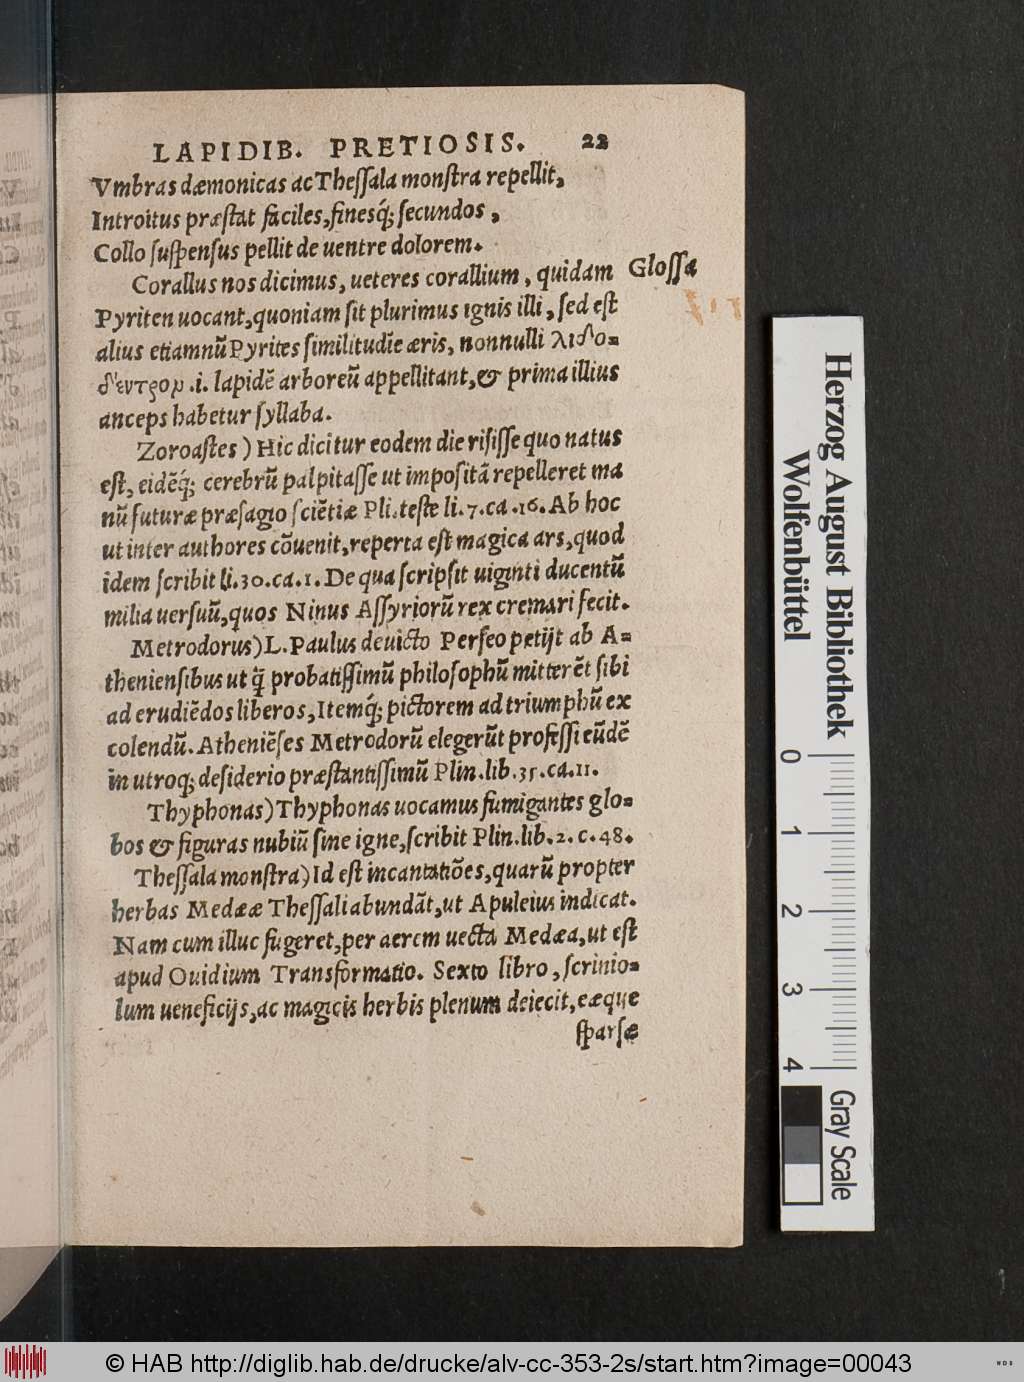 LAPIDIB. PRETIOSIS. 22
Vmbras dæmonicas ac Theſſala monſtra repellit,
Introitus præſtat faciles, finesq́; ſecundos,
Collo ſuſpenſus pellit de uentre dolorem.
Corallus nos dicimus, ueteres corallium, quidam
Gloſſa
Pyriten uocant, quoniam ſit plurimus ignis illi, ſed eſt
alius etiamnũ Pyrites ſimilitudĩe æris, nonnulli λιθο-
δεντρομ .i. lapidẽ arboreũ appellitant, & prima illius
anceps habetur ſyllaba.
Zoroaſtes) Hic dicitur eodem die riſiſſe quo natus
eſt, eidẽq́; cerebrũ palpitaſſe ut impoſitã repelleret ma
nũ futuræ præſagio ſciẽtiæ Pli. teſte li. 7. ca. 16. Ab hoc
ut inter authores cõuenit, reperta eſt magica ars, quod
idem ſcribit li. 30. ca. 1. De qua ſcripſit uiginti ducentũ
milia uerſuũ, quos Ninus Aſſyriorũ rex cremari fecit.
Metrodorus) L. Paulus deuicto Perſeo petijt ab A-
thenienſibus ut q̃ probatiſſimũ philoſophũ mitterẽt ſibi
ad erudiẽdos liberos, Itemq́; pictorem ad triumphũ ex
colendũ. Atheniẽſes Metrodorũ elegerũt profeſſi eũdẽ
in utroq; deſiderio præſtantiſſimũ Plin. lib. 35. ca. 11.
Thyphonas) Thyphonas uocamus fumigantes glo-
bos & figuras nubiũ ſine igne, ſcribit Plin. lib. 2. c. 48.
Theſſala monſtra) Id eſt incantatiões, quarũ propter
herbas Medææ Theſſali abundãt, ut Apuleius indicat.
Nam cum illuc fugeret, per aerem uecta Medæa, ut eſt
apud Ouidium Transformatio. Sexto libro, ſcrinio-
lum ueneficijs, ac magicis herbis plenum deiecit, eæque
ſparſæ
Herzog August Bibliothek
Wolfenbüttel
0 1 2 3 4
Gray Scale
© HAB http://diglib.hab.de/drucke/alv-cc-353-2s/start.htm?image=00043